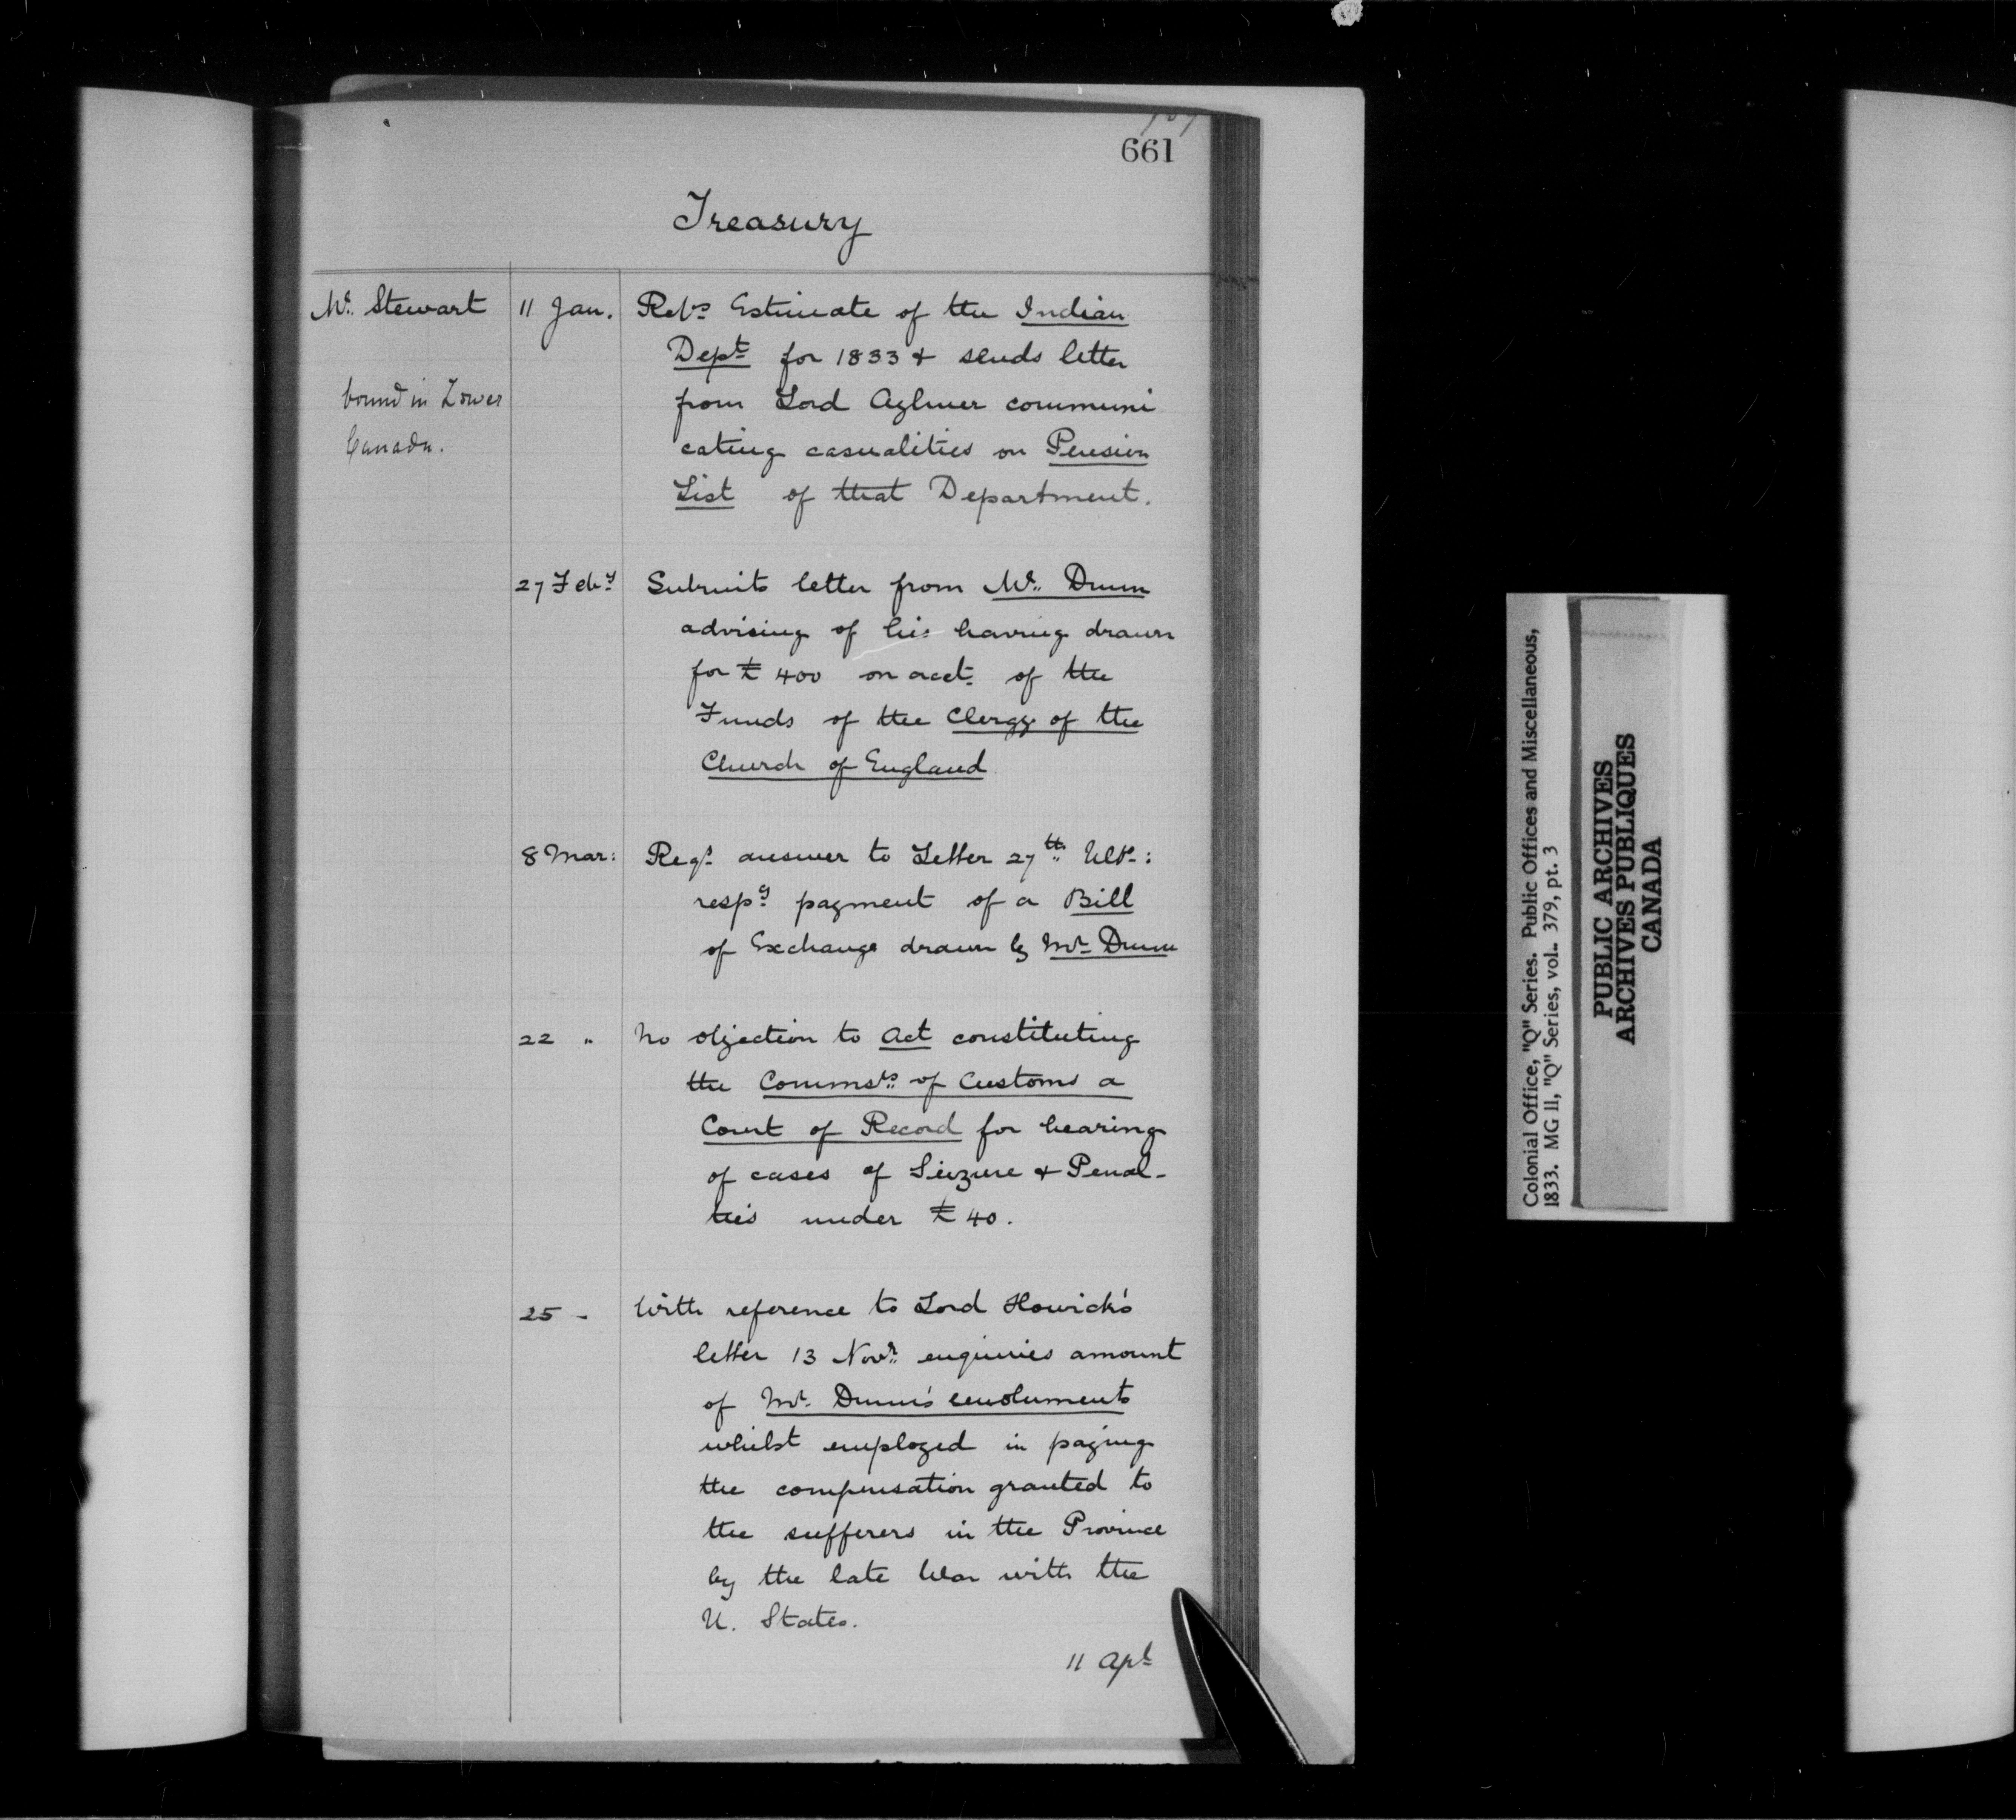 661
Treasury
Mr. Stewart
bound in Lower
Canada.
11 Jan.
Rets Estimate of the Indian
Dept for 1833 & sends letter
from Lord Aylmer communi
cating casualities on Pension
List of that Department.
27 Feby
Submits letter from Mr. Dunn
advising of his having drawn
for £400 on acct. of the
Funds of the Clergy of the
Church of England
8 Mar:
Reqs. answer to Letter 27th Ulto:
respg payment of a Bill
of Exchange drawn by Mr Dunn
22 "
No objection to Act constituting
the Commsrs. of Customs a
Court of Record for hearing
of cases of Seizure & Penal-
ties under £40.
25 -
With reference to Lord Howick's
letter 13 Novr. enquiries amount
of Mr. Dunn's emoluments
whilst employed in paying
the compensation granted to
the sufferers in the Province
by the late War with the
U. States.
11 Apl
Colonial Office, "Q" Series. Public Offices and Miscellaneous,
1833. MG 11, "Q" Series, vol. 379, pt. 3
PUBLIC ARCHIVES
ARCHIVES PUBLIQUES
CANADA